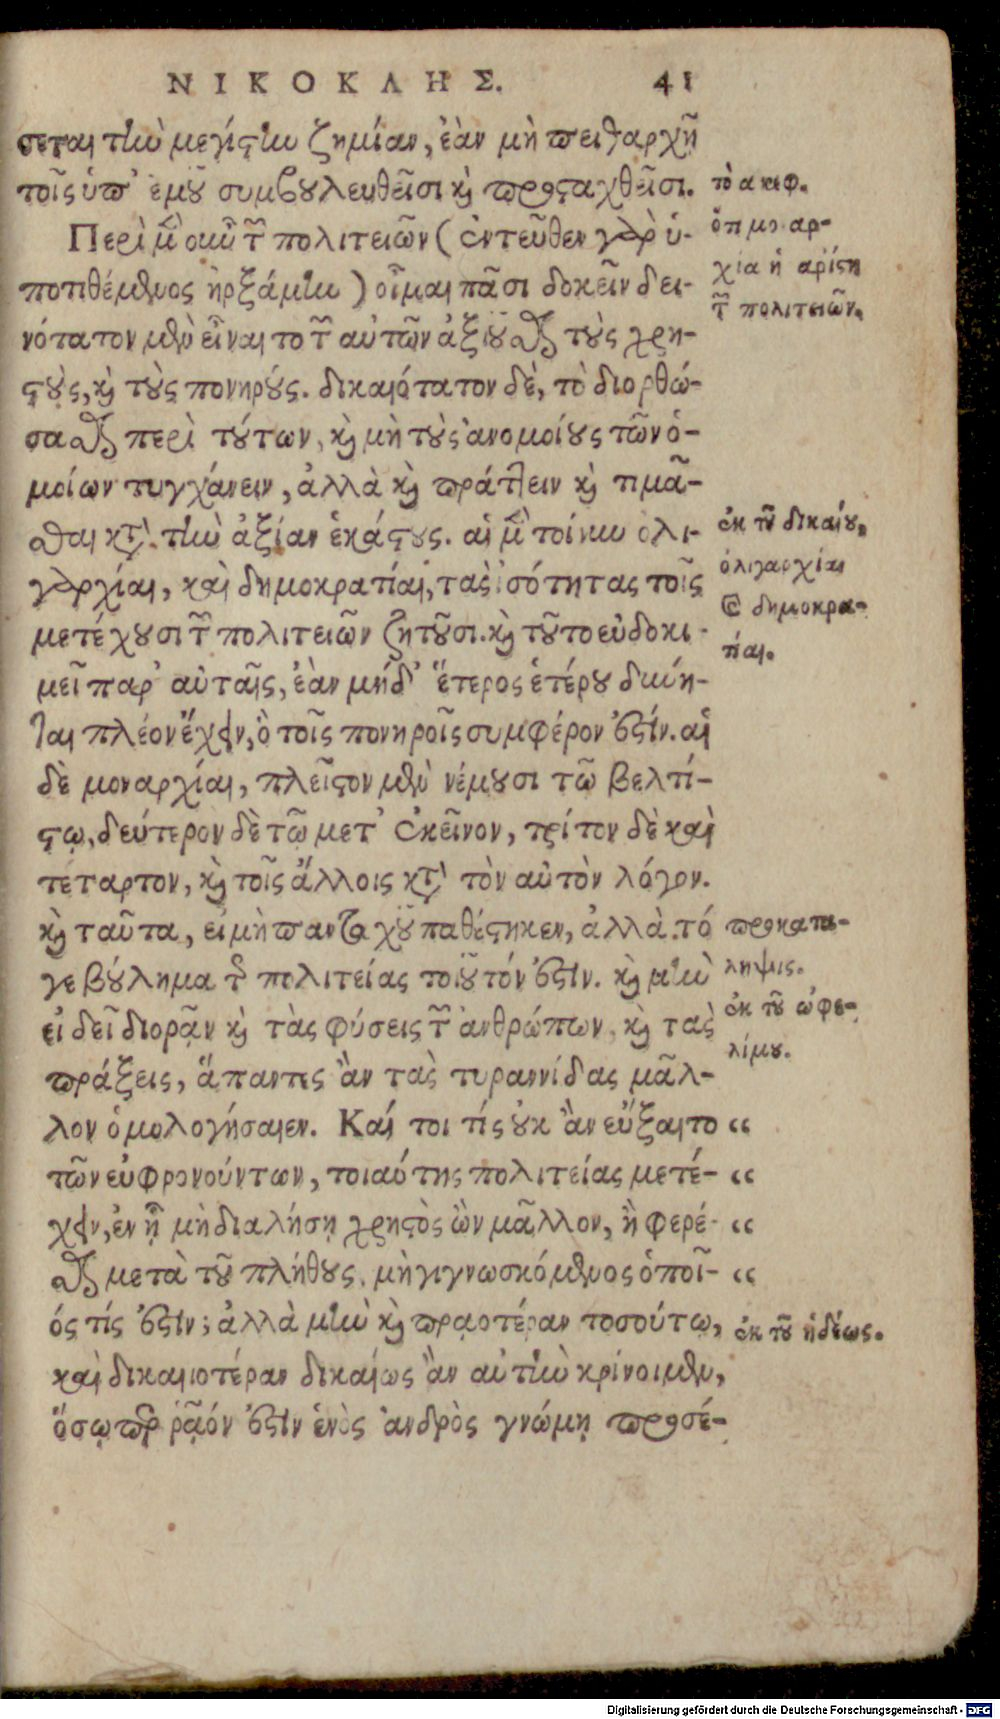 ΝΙΚΟΚΛΗΣ. 41
σεται τὴν μεγίστην ζημίαν, ἐὰν μὴ πειθαρχῇ
τοῖς ὑπ' ἐμοῦ συμβουλευθεῖσι καὶ προσταχθεῖσι.
Περὶ μὲν οὖν τῶν πολιτειῶν (ἐντεῦθεν γὰρ ὑ-
ποτιθέμενος ἠρξάμην) οἶμαι πᾶσι δοκεῖν δει-
νότατον μὲν εἶναι το τῶν αὐτῶν ἀξιοῦσθαι τοὺς χρη-
στοὺς, καὶ τοὺς πονηρούς. δικαιότατον δὲ, τὸ διορθώ-
σασθαι περὶ τούτων, καὶ μὴ τοὺς ἀνομοίους τῶν ὁ-
μοίων τυγχάνειν, ἀλλὰ καὶ πράττειν καὶ τιμᾶ-
σθαι κατὰ τὴν ἀξίαν ἑκάστους. αἱ μὲν τοίνυν ὀλι-
γαρχίαι, καὶ δημοκρατίαι, τὰς ἰσότητας τοῖς
μετέχουσι τῶν πολιτειῶν ζητοῦσι. καὶ τοῦτο εὐδοκι-
μεῖ παρ' αὐταῖς, ἐὰν μηδ' ἕτερος ἑτέρου δύνη-
ται πλέον ἔχειν, ὃ τοῖς πονηροῖς συμφέρον ἐστίν. αἱ
δὲ μοναρχίαι, πλεῖστον μὲν νέμουσι τῷ βελτί-
στῳ, δεύτερον δὲ τῷ μετ' ἐκεῖνον, τρίτον δὲ καὶ
τέταρτον, καὶ τοῖς ἄλλοις κατὰ τὸν αὐτὸν λόγον.
καὶ ταῦτα, εἰ μὴ πανταχοῦ παθέστηκεν, ἀλλὰ τό
γε βούλημα τῆς πολιτείας τοιοῦτόν ἐστιν. καὶ μὴν
εἰ δεῖ διορᾷν καὶ τὰς φύσεις τῶν ἀνθρώπων, καὶ τὰς
πράξεις, ἅπαντες ἂν τὰς τυραννίδας μᾶλ-
λον ὁμολογήσαιεν. Καί τοι τίς οὐκ ἂν εὔξαιτο “
τῶν εὐφρονούντων, τοιαύτης πολιτείας μετέ- “
χειν, ἐν ᾗ μὴ διαλήσῃ χρηστὸς ὢν μᾶλλον, ἢ φερέ- “
σθαι μετὰ τοῦ πλήθους, μὴ γιγνωσκόμενος ὁποῖ- “
ός τίς ἐστιν; ἀλλὰ μὴν καὶ πραοτέραν τοσούτῳ,
καὶ δικαιοτέραν δικαίως ἂν αὐτὴν κρίνοιμεν,
ὅσῳπερ ῥᾷόν ἐστιν ἑνὸς ἀνδρὸς γνώμῃ προσέ-
τὸ α κεφ.
ὅτι μοναρ-
χία ἡ ἀρίστη
τῶν πολιτειῶν.
ἐκ τοῦ δικαίου,
ὀλιγαρχίαι
καὶ δημοκρα-
τίαι.
προκατα-
ληψις.
ἐκ τοῦ ὠφε-
λίμου.
ἐκ τοῦ ἡδέως.
Digitalisierung gefördert durch die Deutsche Forschungsgemeinschaft - DFG